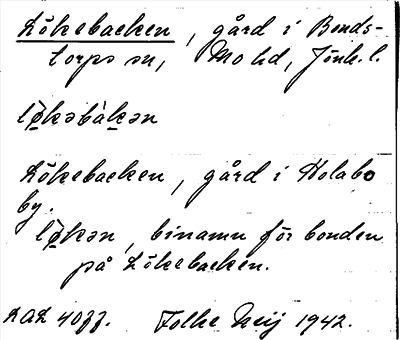 Lökebacken, gård i Bonds-
torps sn, Mo hd, Jönk. l.
lø̀kəbàkən
Lökebacken, gård i Holabo
by.
lø̀kən, binamn för bonden
på Lökebacken.
Folke Neij 1942.